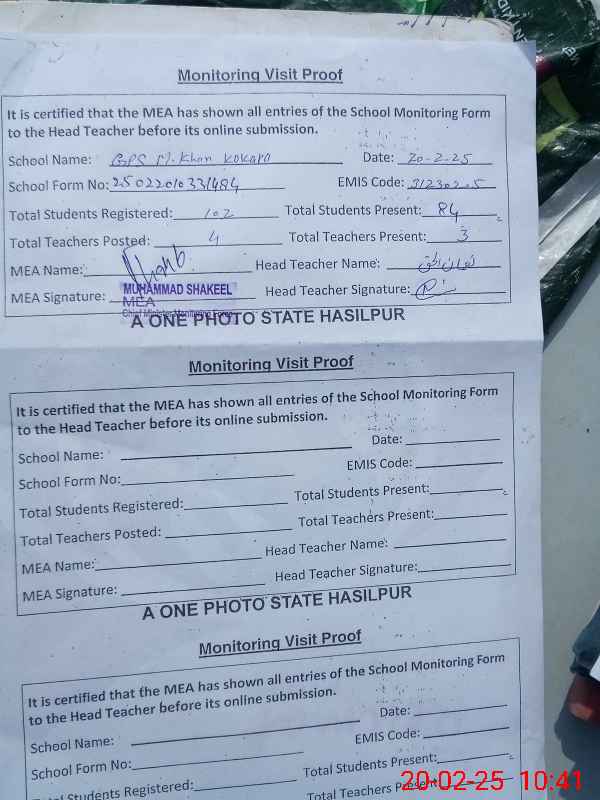 Monitoring Visit Proof
It is certified that the MEA has shown all entries of the School Monitoring Form
to the Head Teacher before its online submission.
School Name: GPS M. Khan Kokara Date: 20-2-25
School Form No: 25022010331484 EMIS Code: 31230205
Total Students Registered: 102 Total Students Present: 84
Total Teachers Posted: 4 Total Teachers Present: 3
MEA Name: Head Teacher Name: نعمان الحق
MEA Signature: MUHAMMAD SHAKEEL Head Teacher Signature:
MEA
Chief Minister Monitoring Force
A ONE PHOTO STATE HASILPUR
Monitoring Visit Proof
It is certified that the MEA has shown all entries of the School Monitoring Form
to the Head Teacher before its online submission.
School Name: Date:
School Form No: EMIS Code:
Total Students Registered: Total Students Present:
Total Teachers Posted: Total Teachers Present:
MEA Name: Head Teacher Name:
MEA Signature: Head Teacher Signature:
A ONE PHOTO STATE HASILPUR
Monitoring Visit Proof
It is certified that the MEA has shown all entries of the School Monitoring Form
to the Head Teacher before its online submission.
School Name: Date:
School Form No: EMIS Code:
Total Students Registered: Total Students Present:
Total Teachers Posted: Total Teachers Present:
20-02-25 10:41